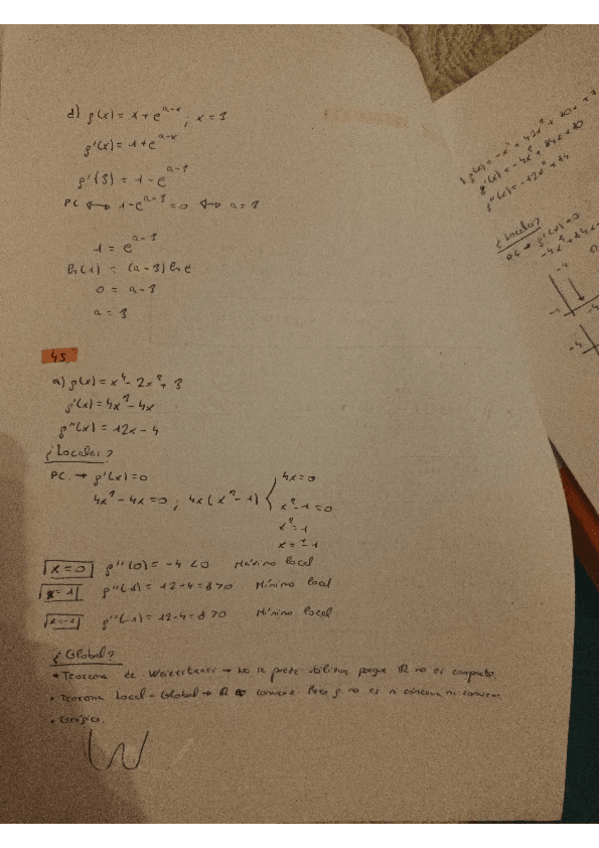 d) f(x) = x + e^(a-x) ; x = 3
f'(x) = 1 + e^(a-x)
f'(3) = 1 - e^(a-3)
PC ⟷ 1 - e^(a-3) = 0 ⟷ a = 3
1 = e^(a-3)
ln(1) = (a-3) ln e
0 = a - 3
a = 3
45
a) f(x) = x⁴ - 2x² + 3
f'(x) = 4x³ - 4x
f''(x) = 12x - 4
¿Locales?
PC → f'(x) = 0
4x³ - 4x = 0 ; 4x(x² - 1)
4x = 0
x² - 1 = 0
x² = 1
x = ± 1
x = 0 f''(0) = -4 < 0 Máximo local
x = 1 f''(1) = 12 - 4 = 8 > 0 Mínimo local
x = -1 f''(-1) = 12 - 4 = 8 > 0 Mínimo local
¿Global?
• Teorema de → No se puede utilizar porque ℝ no es compacto.
• Teorema Local - Global → ℝ es convexo Pero f no es ni cóncava ni convexa
• Gráfica.
f(x) = -x⁴ + 12x² +
f'(x) = -4x³ + 24x +
f''(x) = -12x² + 24
¿Locales?
PC → f'(x) = 0
-4x³ + 24x +